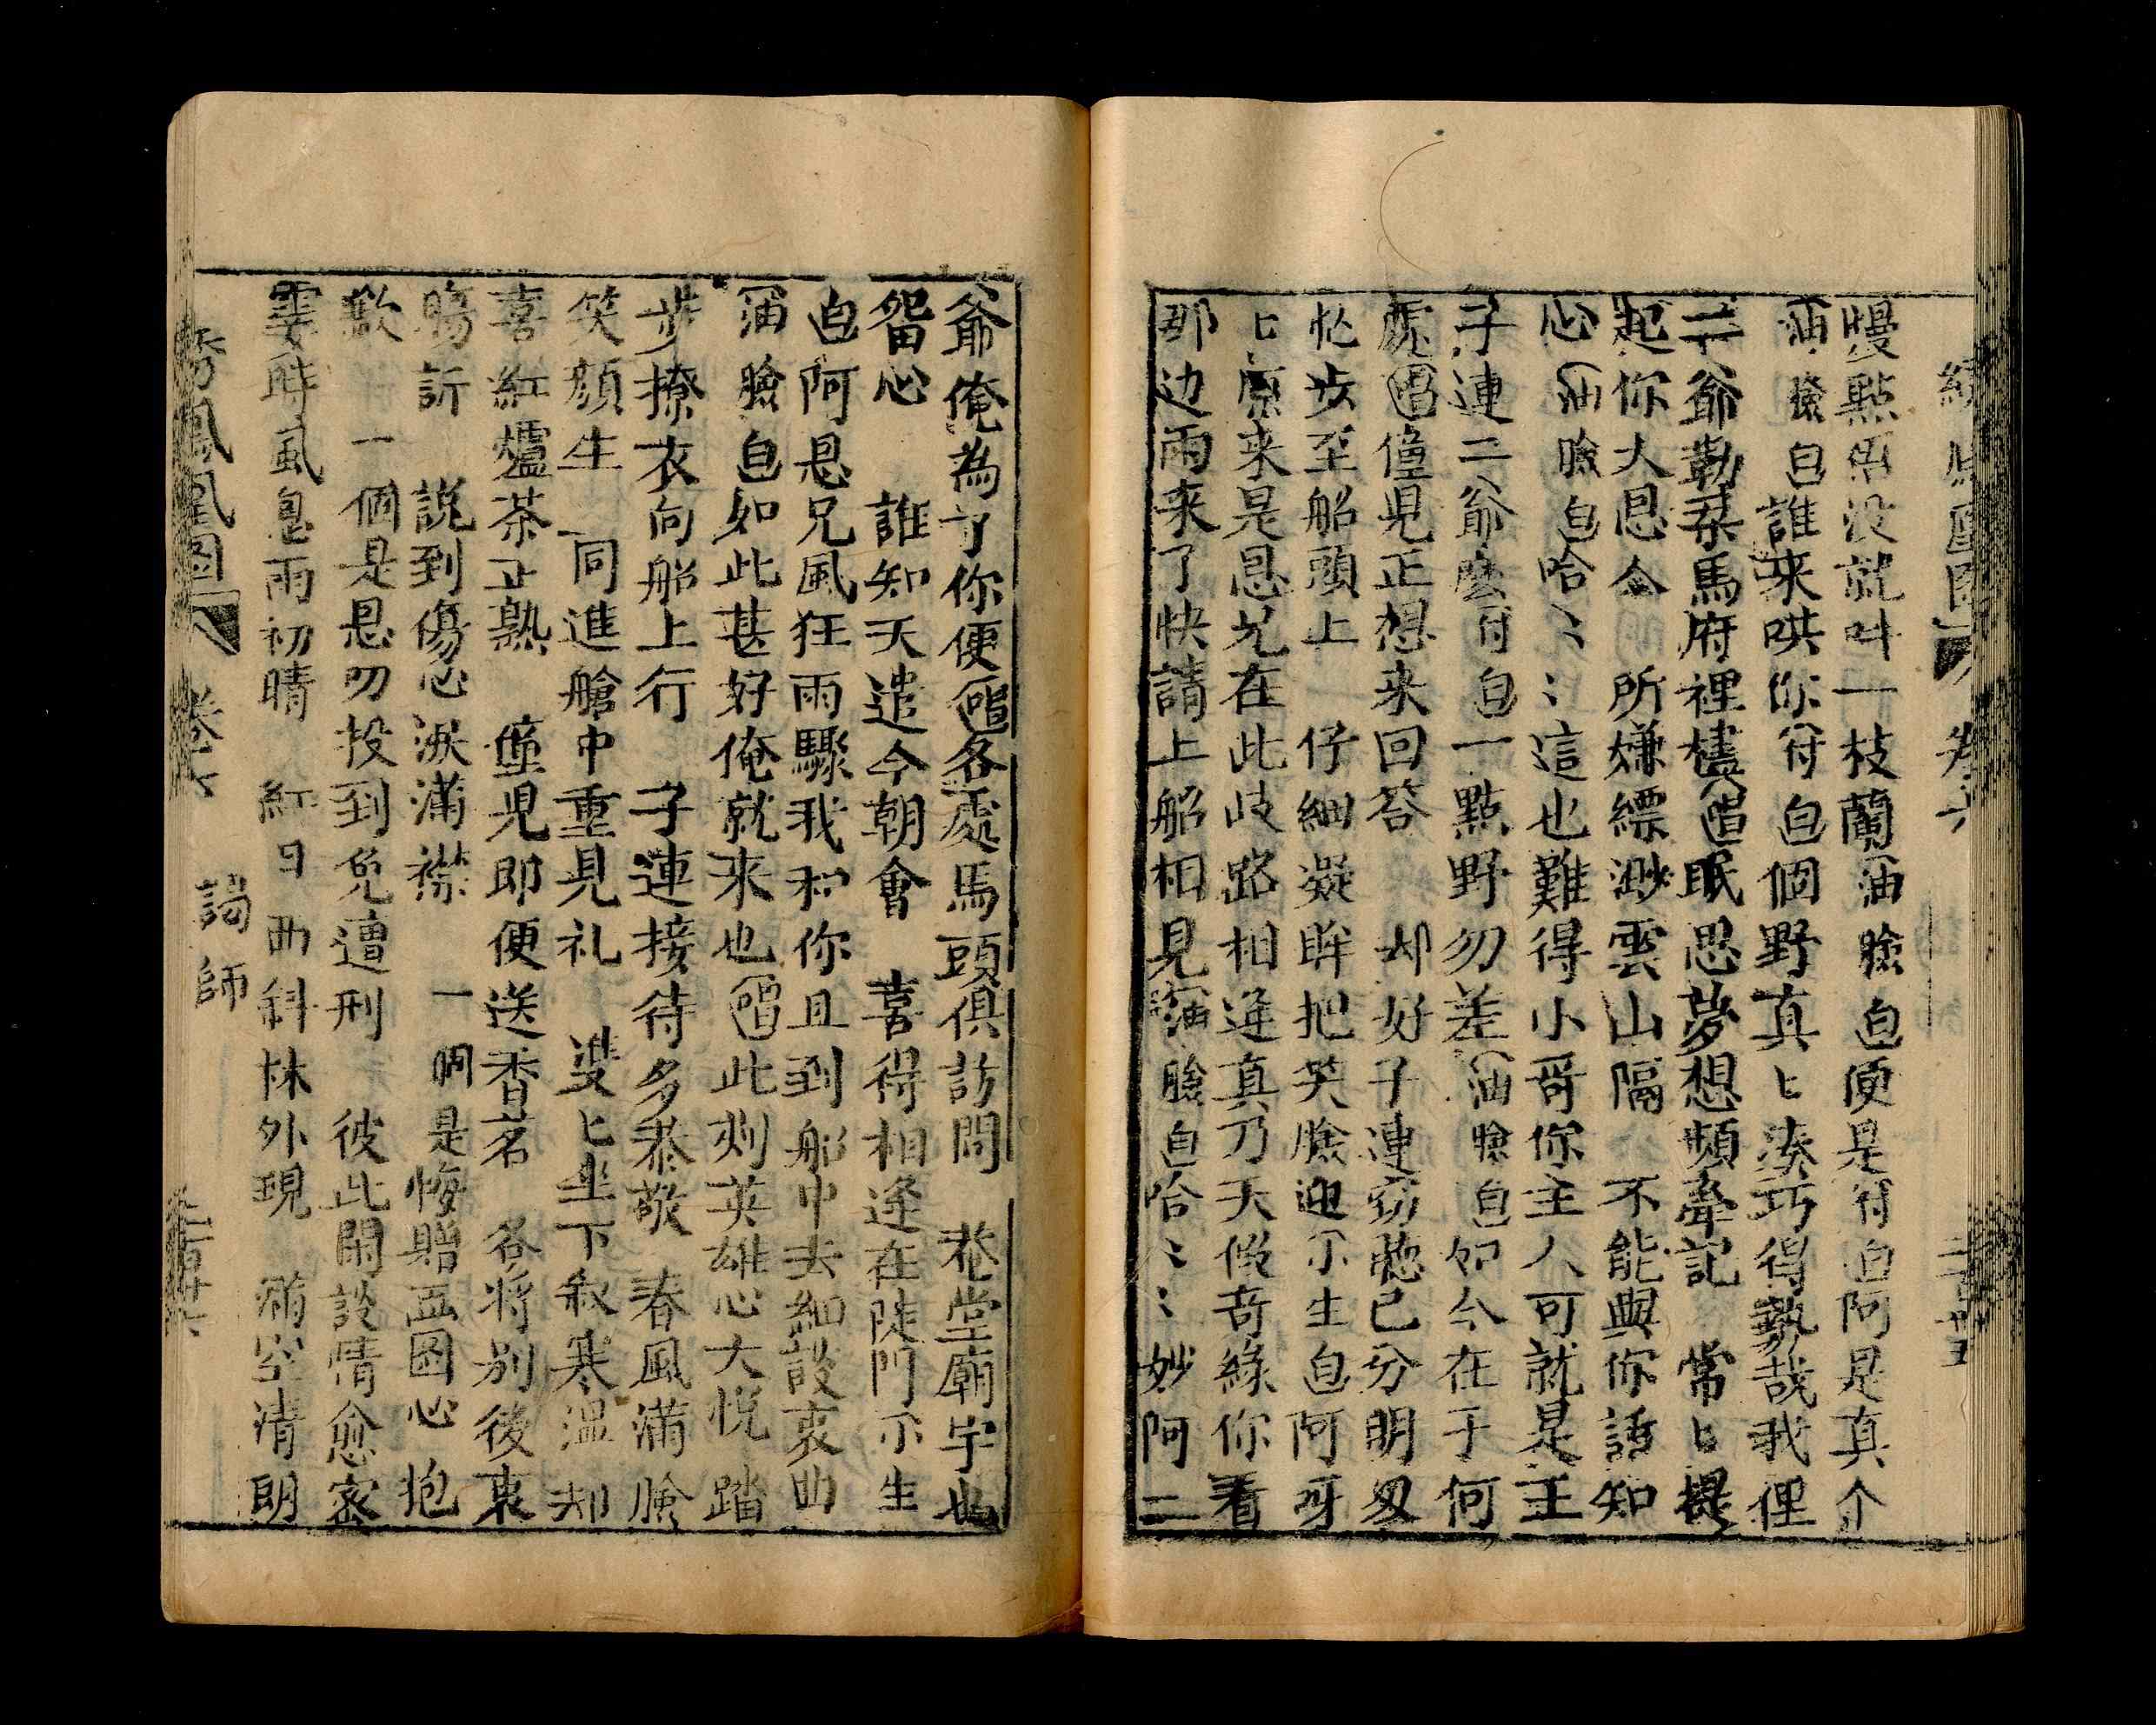 慢點唱没就叫一枝蘭油臉白便是付白阿是真个
油臉白誰来哄你付白個野真〻湊巧得勢哉我俚
二爺勒栞馬府裡樓唱眠思夢想頻牽記 常〻提
起你大恩令 所嫌縹渺雲山隔 不能與你話知
心油臉白哈〻〻這也難得小哥你主人可就是王
子連二爺麽付白一點野勿差油臉白如今在于何
處唱僮児正想来回答 却好子連窃聽已分明忽
忙步至船頭上 仔細凝眸把笑臉迎小生白阿呀
〻原来是恩兄在此岐路相逢真乃天假竒緣你看
那边雨来了快請上船相見油臉白哈〻〻妙阿二
爺俺為了你便唱各處馬頭俱訪問 菴堂廟宇也
畱心 誰知天遣今朝會 喜得相逢在陡門小生
白阿恩兄風狂雨驟我和你且到船中去細談衷曲
油臉白如此甚好俺就来也唱此刻英雄心大悅 踏
步撩衣向船上行 子連接待多恭敬 春風滿臉
笑顔生 同進艙中重見礼 雙〻坐下叙寒温 却
喜紅爐茶正熟 童児即便送香茗 各將别後衷
腸訴 說到傷心淚滿襟 一個是悔贈画图心抱
歉 一個是恩兄投到免遭刑 彼此閑談情愈密
霎時風息雨初晴 紅日西斜林外現 滿空清朗
綉鳳凰图 卷六 謁師